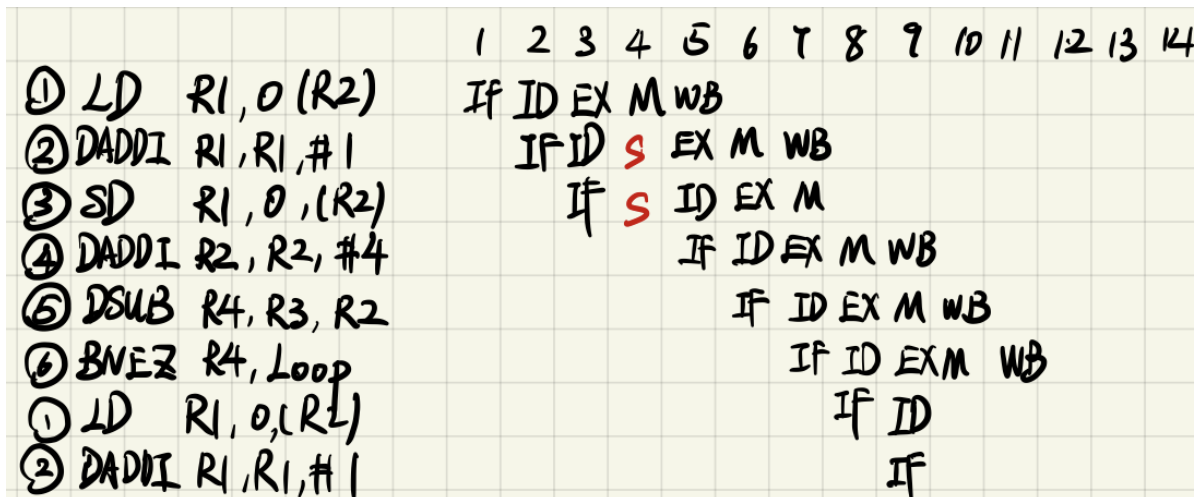 1 2 3 4 5 6 7 8 9 10 11 12 13 14
① LD R1, 0(R2) IF ID EX M WB
② DADDI R1, R1, #1 IF ID S EX M WB
③ SD R1, 0, (R2) IF S ID EX M
④ DADDI R2, R2, #4 IF ID EX M WB
⑤ DSUB R4, R3, R2 IF ID EX M WB
⑥ BNEZ R4, Loop IF ID EX M WB
① LD R1, 0, (R2) IF ID
② DADDI R1, R1, #1 IF